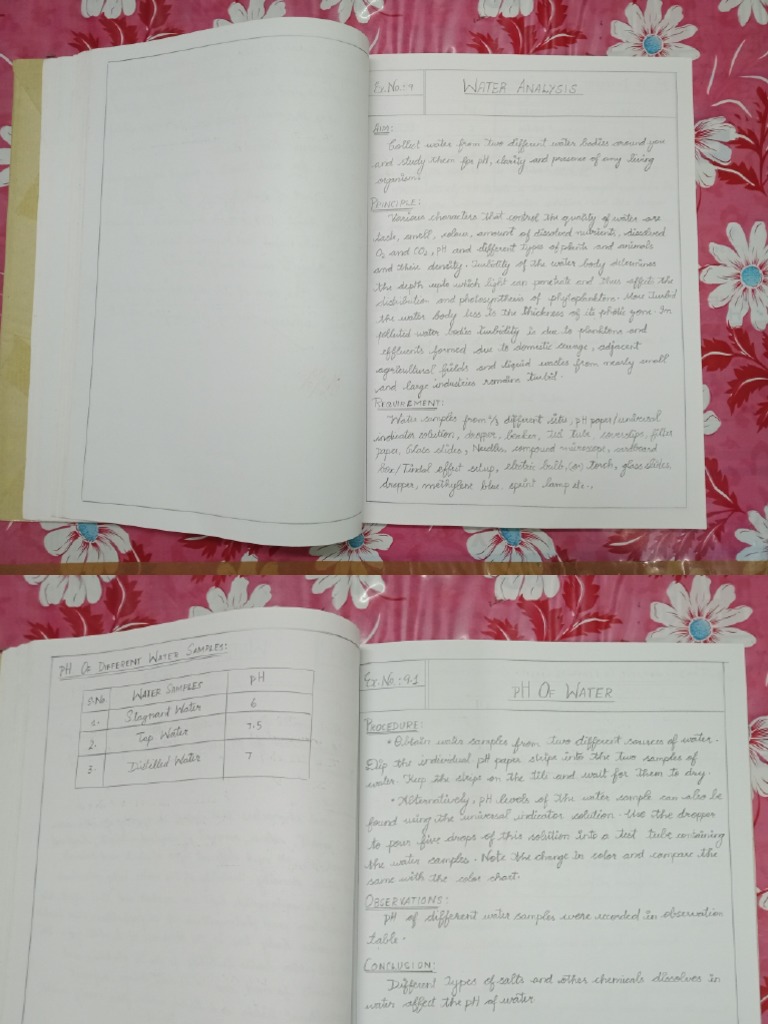 Ex.No.: 9
WATER ANALYSIS
AIM:
Collect water from two different water bodies around you
and study them for pH, clarity and presence of any living
organism.
PRINCIPLE:
Various characters that control the quality of water are
taste, smell, colour, amount of dissolved nutrients, dissolved
O₂ and CO₂, pH and different types of plants and animals
and their density. Turbidity of the water body determines
the depth upto which light can penetrate and thus affects the
distribution and photosynthesis of phytoplankton. More turbid
the water body less is the thickness of its photic zone. In
polluted water bodies turbidity is due to planktons and
effluents formed due to domestic sewage, adjacent
agricultural fields and liquid wastes from nearly small
and large industries remains turbid.
REQUIREMENT:
Water samples from 2/3 different sites, pH paper/universal
indicator solution, dropper, beaker, Test tube, coverslips, filter
paper, Glass slides, Needles, compound microscope, cardboard
box/Tindal effect setup, electric bulb (or) torch, glass slides,
dropper, methylene blue, spirit lamp etc.,
PH OF DIFFERENT WATER SAMPLES:
S.No WATER SAMPLES pH
1. Stagnant Water 6
2. Tap Water 7.5
3. Distilled Water 7
Ex.No.: 9.1
pH OF WATER
PROCEDURE:
• Obtain water samples from two different sources of water.
Dip the individual pH paper strips into the two samples of
water. Keep the strips on the tile and wait for them to dry.
• Alternatively, pH levels of the water sample can also be
found using the universal indicator solution. Use the dropper
to pour five drops of this solution into a test tube containing
the water samples. Note the change in color and compare the
same with the color chart.
OBSERVATIONS:
pH of different water samples were recorded in observation
table.
CONCLUSION:
Different types of salts and other chemicals dissolves in
water affect the pH of water